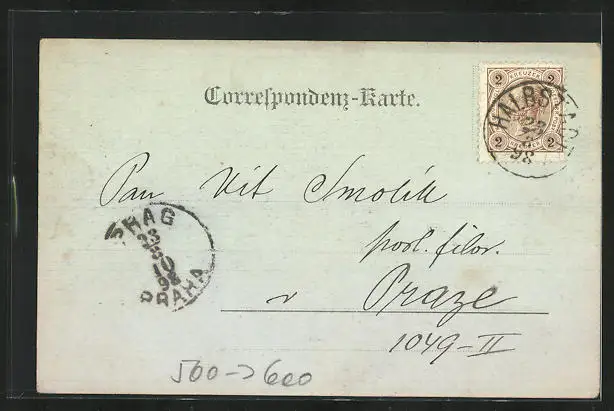 Correspondenz-Karte.
2 KREUZER 2
2 2
HALBSTADT
23
8
98
Pan Vít Smolík
posl. filos.
v Praze
1049-II
PRAG
23
8
10
98
PRAHA
500->600